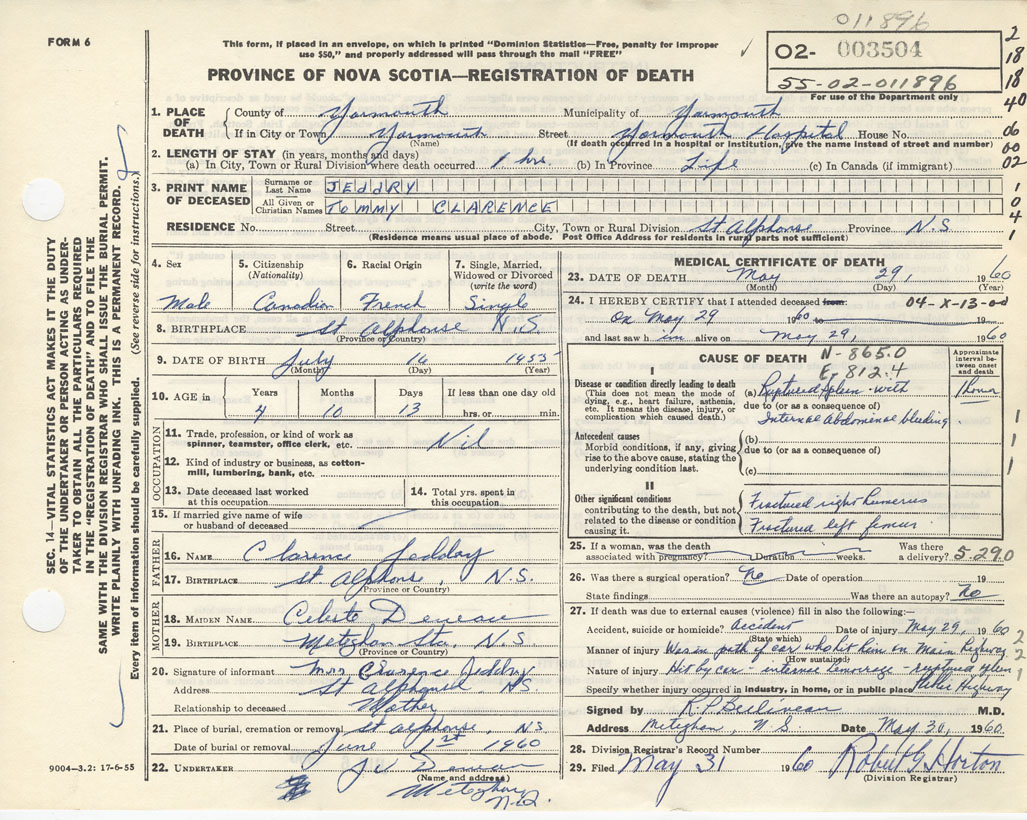 011896
FORM 6
This form, if placed in an envelope, on which is printed "Dominion Statistics—Free, penalty for improper
use $50," and properly addressed will pass through the mail "FREE"
02- 003504
55-02-011896
For use of the Department only
PROVINCE OF NOVA SCOTIA—REGISTRATION OF DEATH
2
18
18
40
06
00
02
1
0
4
1
SEC. 14—VITAL STATISTICS ACT MAKES IT THE DUTY
OF THE UNDERTAKER OR PERSON ACTING AS UNDER-
TAKER TO OBTAIN ALL THE PARTICULARS REQUIRED
IN THE "REGISTRATION OF DEATH" AND TO FILE THE
SAME WITH THE DIVISION REGISTRAR WHO SHALL ISSUE THE BURIAL PERMIT.
WRITE PLAINLY WITH UNFADING INK. THIS IS A PERMANENT RECORD.
Every item of information should be carefully supplied. (See reverse side for instructions.)
1. PLACE OF DEATH County of Yarmouth Municipality of Yarmouth
If in City or Town Yarmouth Street Yarmouth Hospital House No.
(Name) (If death occurred in a hospital or institution, give the name instead of street and number)
2. LENGTH OF STAY (in years, months and days)
(a) In City, Town or Rural Division where death occurred 1 hr. (b) In Province Life (c) In Canada (if immigrant)
3. PRINT NAME OF DECEASED Surname or Last Name JEDDRY
All Given or Christian Names TOMMY CLARENCE
RESIDENCE No. Street City, Town or Rural Division St Alphonse Province N.S.
(Residence means usual place of abode. Post Office Address for residents in rural parts not sufficient)
4. Sex Male
5. Citizenship (Nationality) Canadian
6. Racial Origin French
7. Single, Married, Widowed or Divorced (write the word) Single
8. BIRTHPLACE St Alphonse N.S.
(Province or Country)
9. DATE OF BIRTH July 16 1955
(Month) (Day) (Year)
10. AGE in Years Months Days If less than one day old
4 10 13 hrs. or min.
OCCUPATION
11. Trade, profession, or kind of work as
spinner, teamster, office clerk, etc. Nil
12. Kind of industry or business, as cotton-
mill, lumbering, bank, etc.
13. Date deceased last worked
at this occupation
14. Total yrs. spent in
this occupation
15. If married give name of wife
or husband of deceased
FATHER
16. NAME Clarence Jeddry
17. BIRTHPLACE St Alphonse, N.S.
(Province or Country)
MOTHER
18. MAIDEN NAME Celeste Deveau
19. BIRTHPLACE Meteghan Sta, N.S
(Province or Country)
20. Signature of informant Mrs Clarence Jeddry
Address St Alphonse NS
Relationship to deceased Mother
21. Place of burial, cremation or removal St Alphonse, N.S.
Date of burial or removal June 1st 1960
22. UNDERTAKER
(Name and address)
Meteghan
N.S.
9004—3.2: 17-6-55
MEDICAL CERTIFICATE OF DEATH
23. DATE OF DEATH May 29, 1960
(Month) (Day) (Year)
24. I HEREBY CERTIFY that I attended deceased from: 04-X-13-00
On May 29 1960 to 19
and last saw him alive on May 29, 1960
CAUSE OF DEATH N-865.0
E, 812.4
Approximate interval between onset and death
I
Disease or condition directly leading to death
(This does not mean the mode of
dying, e.g., heart failure, asthenia,
etc. It means the disease, injury, or
complication which caused death.)
(a) Ruptured spleen with 1 hour
due to (or as a consequence of)
Internal Abdominal bleeding.
Antecedent causes
Morbid conditions, if any, giving
rise to the above cause, stating the
underlying condition last.
(b)
due to (or as a consequence of)
(c)
1
1
1
II
Other significant conditions
contributing to the death, but not
related to the disease or condition
causing it.
Fractured right humerus
Fractured left femur
25. If a woman, was the death
associated with pregnancy? Duration weeks. Was there
a delivery? 5-29.0
26. Was there a surgical operation? No Date of operation 19
State findings Was there an autopsy? No
27. If death was due to external causes (violence) fill in also the following:—
Accident, suicide or homicide? Accident Date of injury May 29, 1960
(State which)
Manner of injury Was in path of car who hit him on Main highway
(How sustained)
Nature of injury Hit by car - internal hemorrage - ruptured spleen
Specify whether injury occurred in industry, in home, or in public place Highway
2
2
1
Signed by M.D.
Address Meteghan, N S Date May 30, 1960
28. Division Registrar's Record Number
29. Filed May 31 1960 Robert G Horton
(Division Registrar)